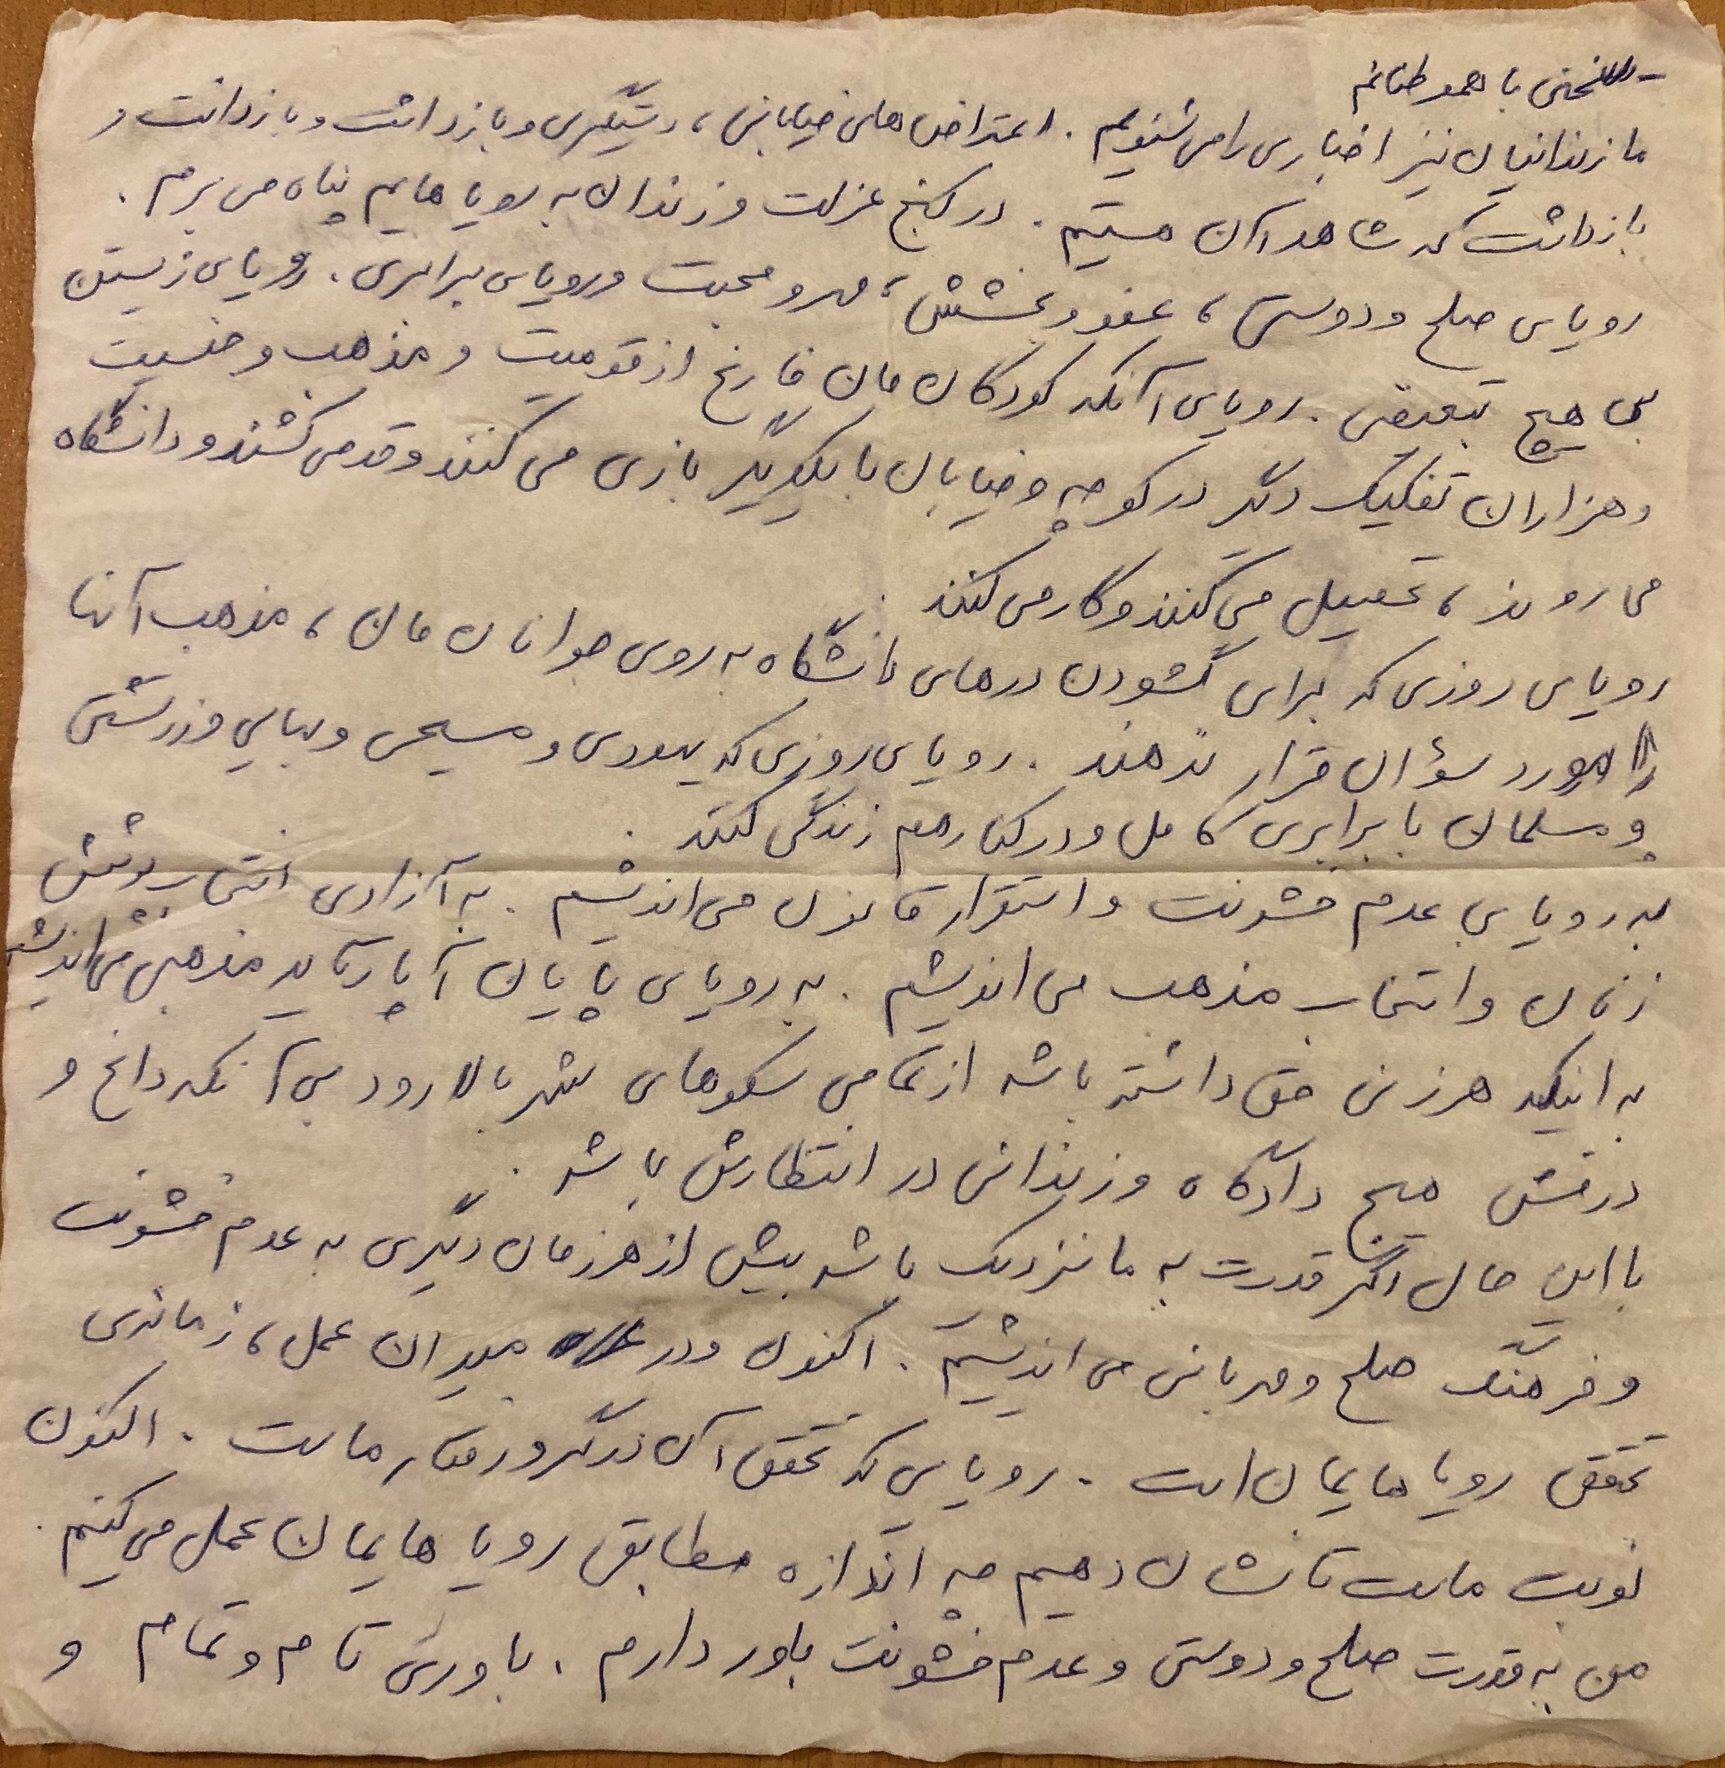 سخنی با هموطنانم
ما زندانیان نیز اخباری را می شنویم . اعتراض های خیابانی ، دستگیری و بازداشت و بازداشت و
بازداشت که شاهد آن هستیم . در کنج عزلت و زندان به رویاهایم پناه می برم .
رویای صلح و دوستی ، عفو و بخشش ، مهر و محبت و رویای برابری . رویای زیستن
بی هیچ تبعیض . رویای آنکه کودکان مان فارغ از قومیت و مذهب و جنسیت
و هزاران تفکیک دگر در کوچه و خیابان با یکدیگر بازی می کنند و قد می کشند و دانشگاه
می روند ، تحصیل می کنند و کار می کنند .
رویای روزی که برای گشودن درهای دانشگاه به روی جوانان مان ، مذهب آنها
را مورد سؤال قرار ندهند . رویای روزی که یهودی و مسیحی و بهایی و زرتشتی
و مسلمان با برابری کامل و در کنار هم زندگی کنند .
به رویای عدم خشونت و استقرار قانون می اندیشم . به آزادی انتخاب پوشش
زنان و انتخاب مذهب می اندیشم . به رویای پایان آپارتاید مذهبی می اندیشم
به اینکه هر زنی حق داشته باشد از تمامی سکوهای شهر بالا رود بی آنکه داغ و
درفش هیچ دادگاه و زندانی در انتظارش باشد .
با این حال اگر قدرت به ما نزدیک باشد بیش از هر زمان دیگری به عدم خشونت
و فرهنگ صلح و مهربانی می اندیشیم . اکنون و در میدان عمل ، زمانه‌ی
تحقق رویاهایمان است . رویایی که تحقق آن در گرو رفتار ماست . اکنون
نوبت ماست تا نشان دهیم چه اندازه مطابق رویاهایمان عمل می کنیم .
من به قدرت صلح و دوستی و عدم خشونت باور دارم . باوری تام و تمام و